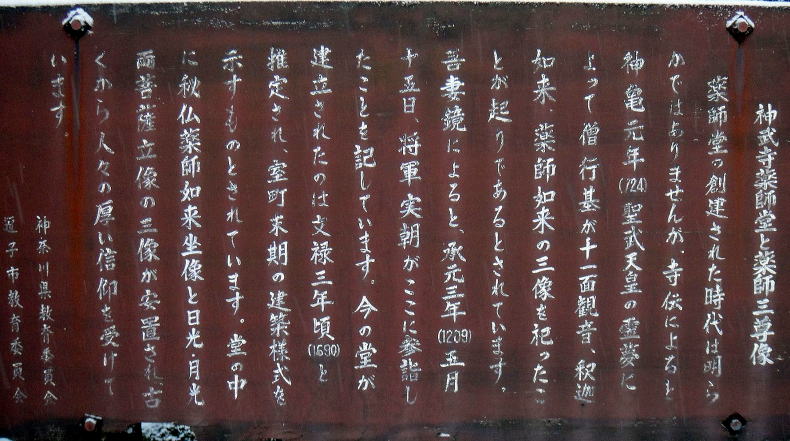 神武寺薬師堂と薬師三尊像
薬師堂の創建された時代は明ら
かではありませんが、寺伝によると
神亀元年(724)聖武天皇の霊夢に
よって僧行基が十一面観音、釈迦
如来、薬師如来の三像を祀ったこ
とが起りであるとされています。
吾妻鏡によると、承元三年(1209)五月
十五日、将軍実朝がここに参詣し
たことを記しています。今の堂が
建立されたのは文禄三年頃(1590)と
推定され、室町末期の建築様式を
示すものとされています。堂の中
に秘仏薬師如来坐像と日光・月光
両菩薩立像の三像が安置され、古
くから人々の厚い信仰を受けて
います。
神奈川県教育委員会
逗子市教育委員会